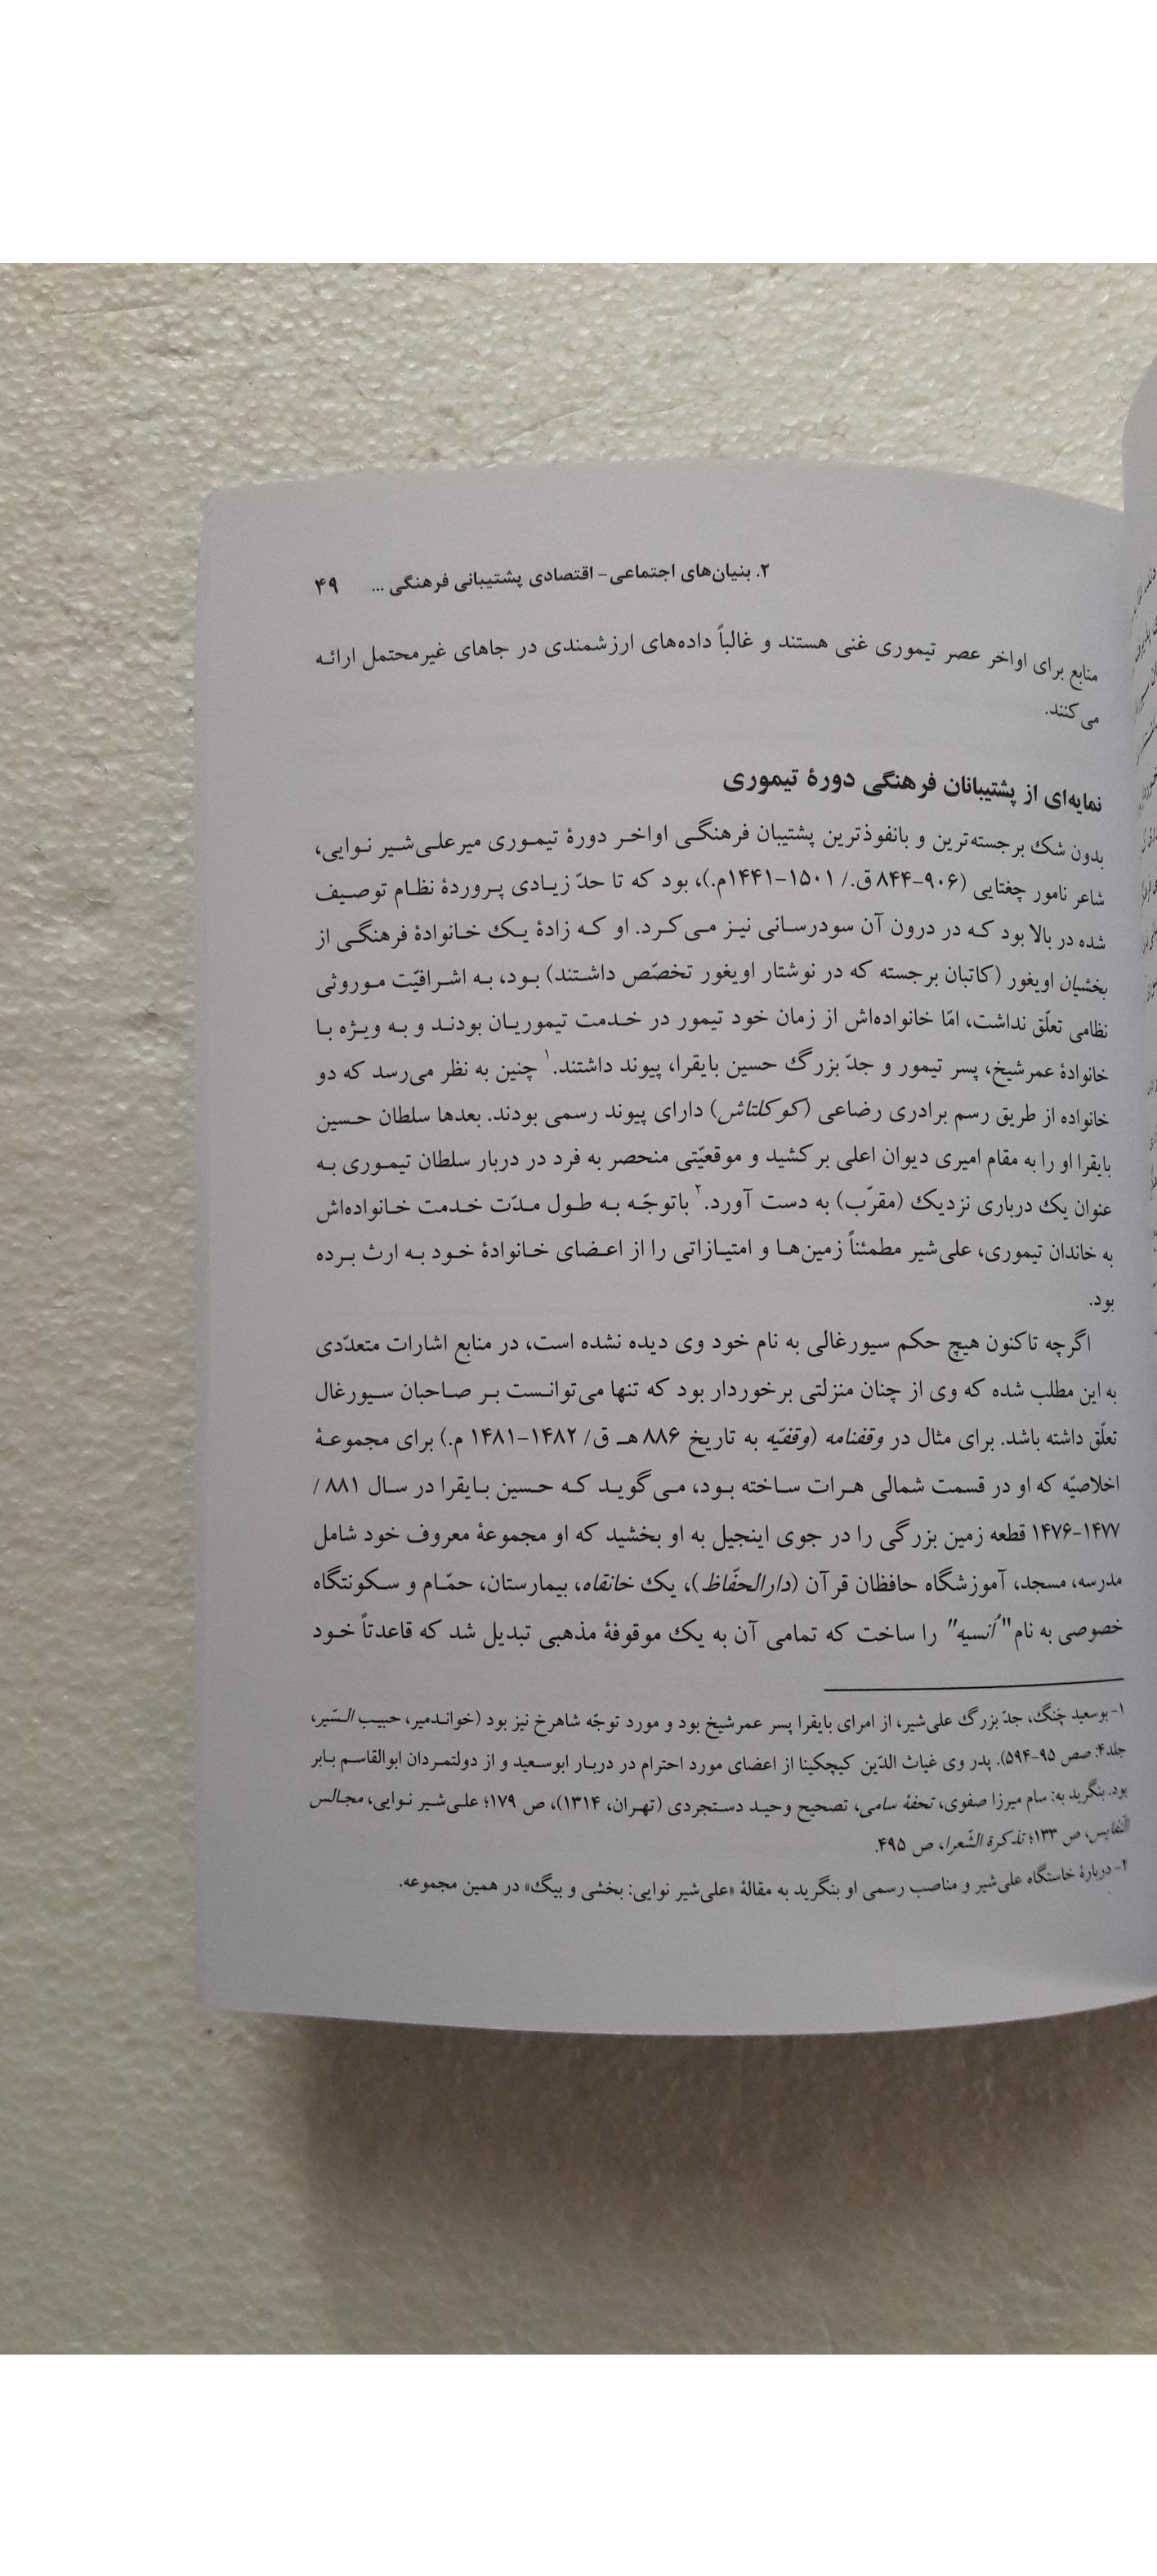 ۲. بنیان‌های اجتماعی- اقتصادی پشتیبانی فرهنگی ... ۴۹
منابع برای اواخر عصر تیموری غنی هستند و غالباً داده‌های ارزشمندی در جاهای غیرمحتمل ارائه
می‌کنند.
نمایه‌ای از پشتیبانان فرهنگی دورۀ تیموری
بدون شک برجسته‌ترین و بانفوذترین پشتیبان فرهنگی اواخر دورۀ تیموری میرعلی‌شیر نوایی،
شاعر نامور چغتایی (۹۰۶-۸۴۴ق./ ۱۵۰۱-۱۴۴۱م.)، بود که تا حدّ زیادی پروردۀ نظام توصیف
شده در بالا بود که در درون آن سودرسانی نیز می‌کرد. او که زادۀ یک خانوادۀ فرهنگی از
بخشیان اویغور (کاتبان برجسته که در نوشتار اویغور تخصّص داشتند) بود، به اشرافیّت موروثی
نظامی تعلّق نداشت، امّا خانواده‌اش از زمان خود تیمور در خدمت تیموریان بودند و به ویژه با
خانوادۀ عمرشیخ، پسر تیمور و جدّ بزرگ حسین بایقرا، پیوند داشتند.۱ چنین به نظر می‌رسد که دو
خانواده از طریق رسم برادری رضاعی (کوکلتاش) دارای پیوند رسمی بودند. بعدها سلطان حسین
بایقرا او را به مقام امیری دیوان اعلی برکشید و موقعیّتی منحصر به فرد در دربار سلطان تیموری به
عنوان یک درباری نزدیک (مقرّب) به دست آورد.۲ باتوجّه به طول مدّت خدمت خانواده‌اش
به خاندان تیموری، علی‌شیر مطمئناً زمین‌ها و امتیازاتی را از اعضای خانوادۀ خود به ارث برده
بود.
اگرچه تاکنون هیچ حکم سیورغالی به نام خود وی دیده نشده است، در منابع اشارات متعدّدی
به این مطلب شده که وی از چنان منزلتی برخوردار بود که تنها می‌توانست بر صاحبان سیورغال
تعلّق داشته باشد. برای مثال در وقفنامه (وقفیّه به تاریخ ۸۸۶ هـ ق/ ۱۴۸۲-۱۴۸۱ م.) برای مجموعۀ
اخلاصیّه که او در قسمت شمالی هرات ساخته بود، می‌گوید که حسین بایقرا در سال ۸۸۱ /
۱۴۷۷-۱۴۷۶ قطعه زمین بزرگی را در جوی اینجیل به او بخشید که او مجموعۀ معروف خود شامل
مدرسه، مسجد، آموزشگاه حافظان قرآن (دارالحفّاظ)، یک خانقاه، بیمارستان، حمّام و سکونتگاه
خصوصی به نام "اُنسیه" را ساخت که تمامی آن به یک موقوفۀ مذهبی تبدیل شد که قاعدتاً خود
۱- بوسعید چَنگ، جدّ بزرگ علی‌شیر، از امرای بایقرا پسر عمرشیخ بود و مورد توجّه شاهرخ نیز بود (خواندمیر، حبیب السّیر،
جلد۴: صص ۹۵-۵۹۴). پدر وی غیاث الدّین کیچکینا از اعضای مورد احترام در دربار ابوسعید و از دولتمردان ابوالقاسم بابر
بود. بنگرید به: سام میرزا صفوی، تحفۀ سامی، تصحیح وحید دستجردی (تهران، ۱۳۱۴)، ص ۱۷۹؛ علی‌شیر نوایی، مجالس
النّفایس، ص ۱۳۳؛ تذکرة الشّعرا، ص ۴۹۵.
۲- دربارۀ خاستگاه علی‌شیر و مناصب رسمی او بنگرید به مقالۀ «علی‌شیر نوایی: بخشی و بیگ» در همین مجموعه.